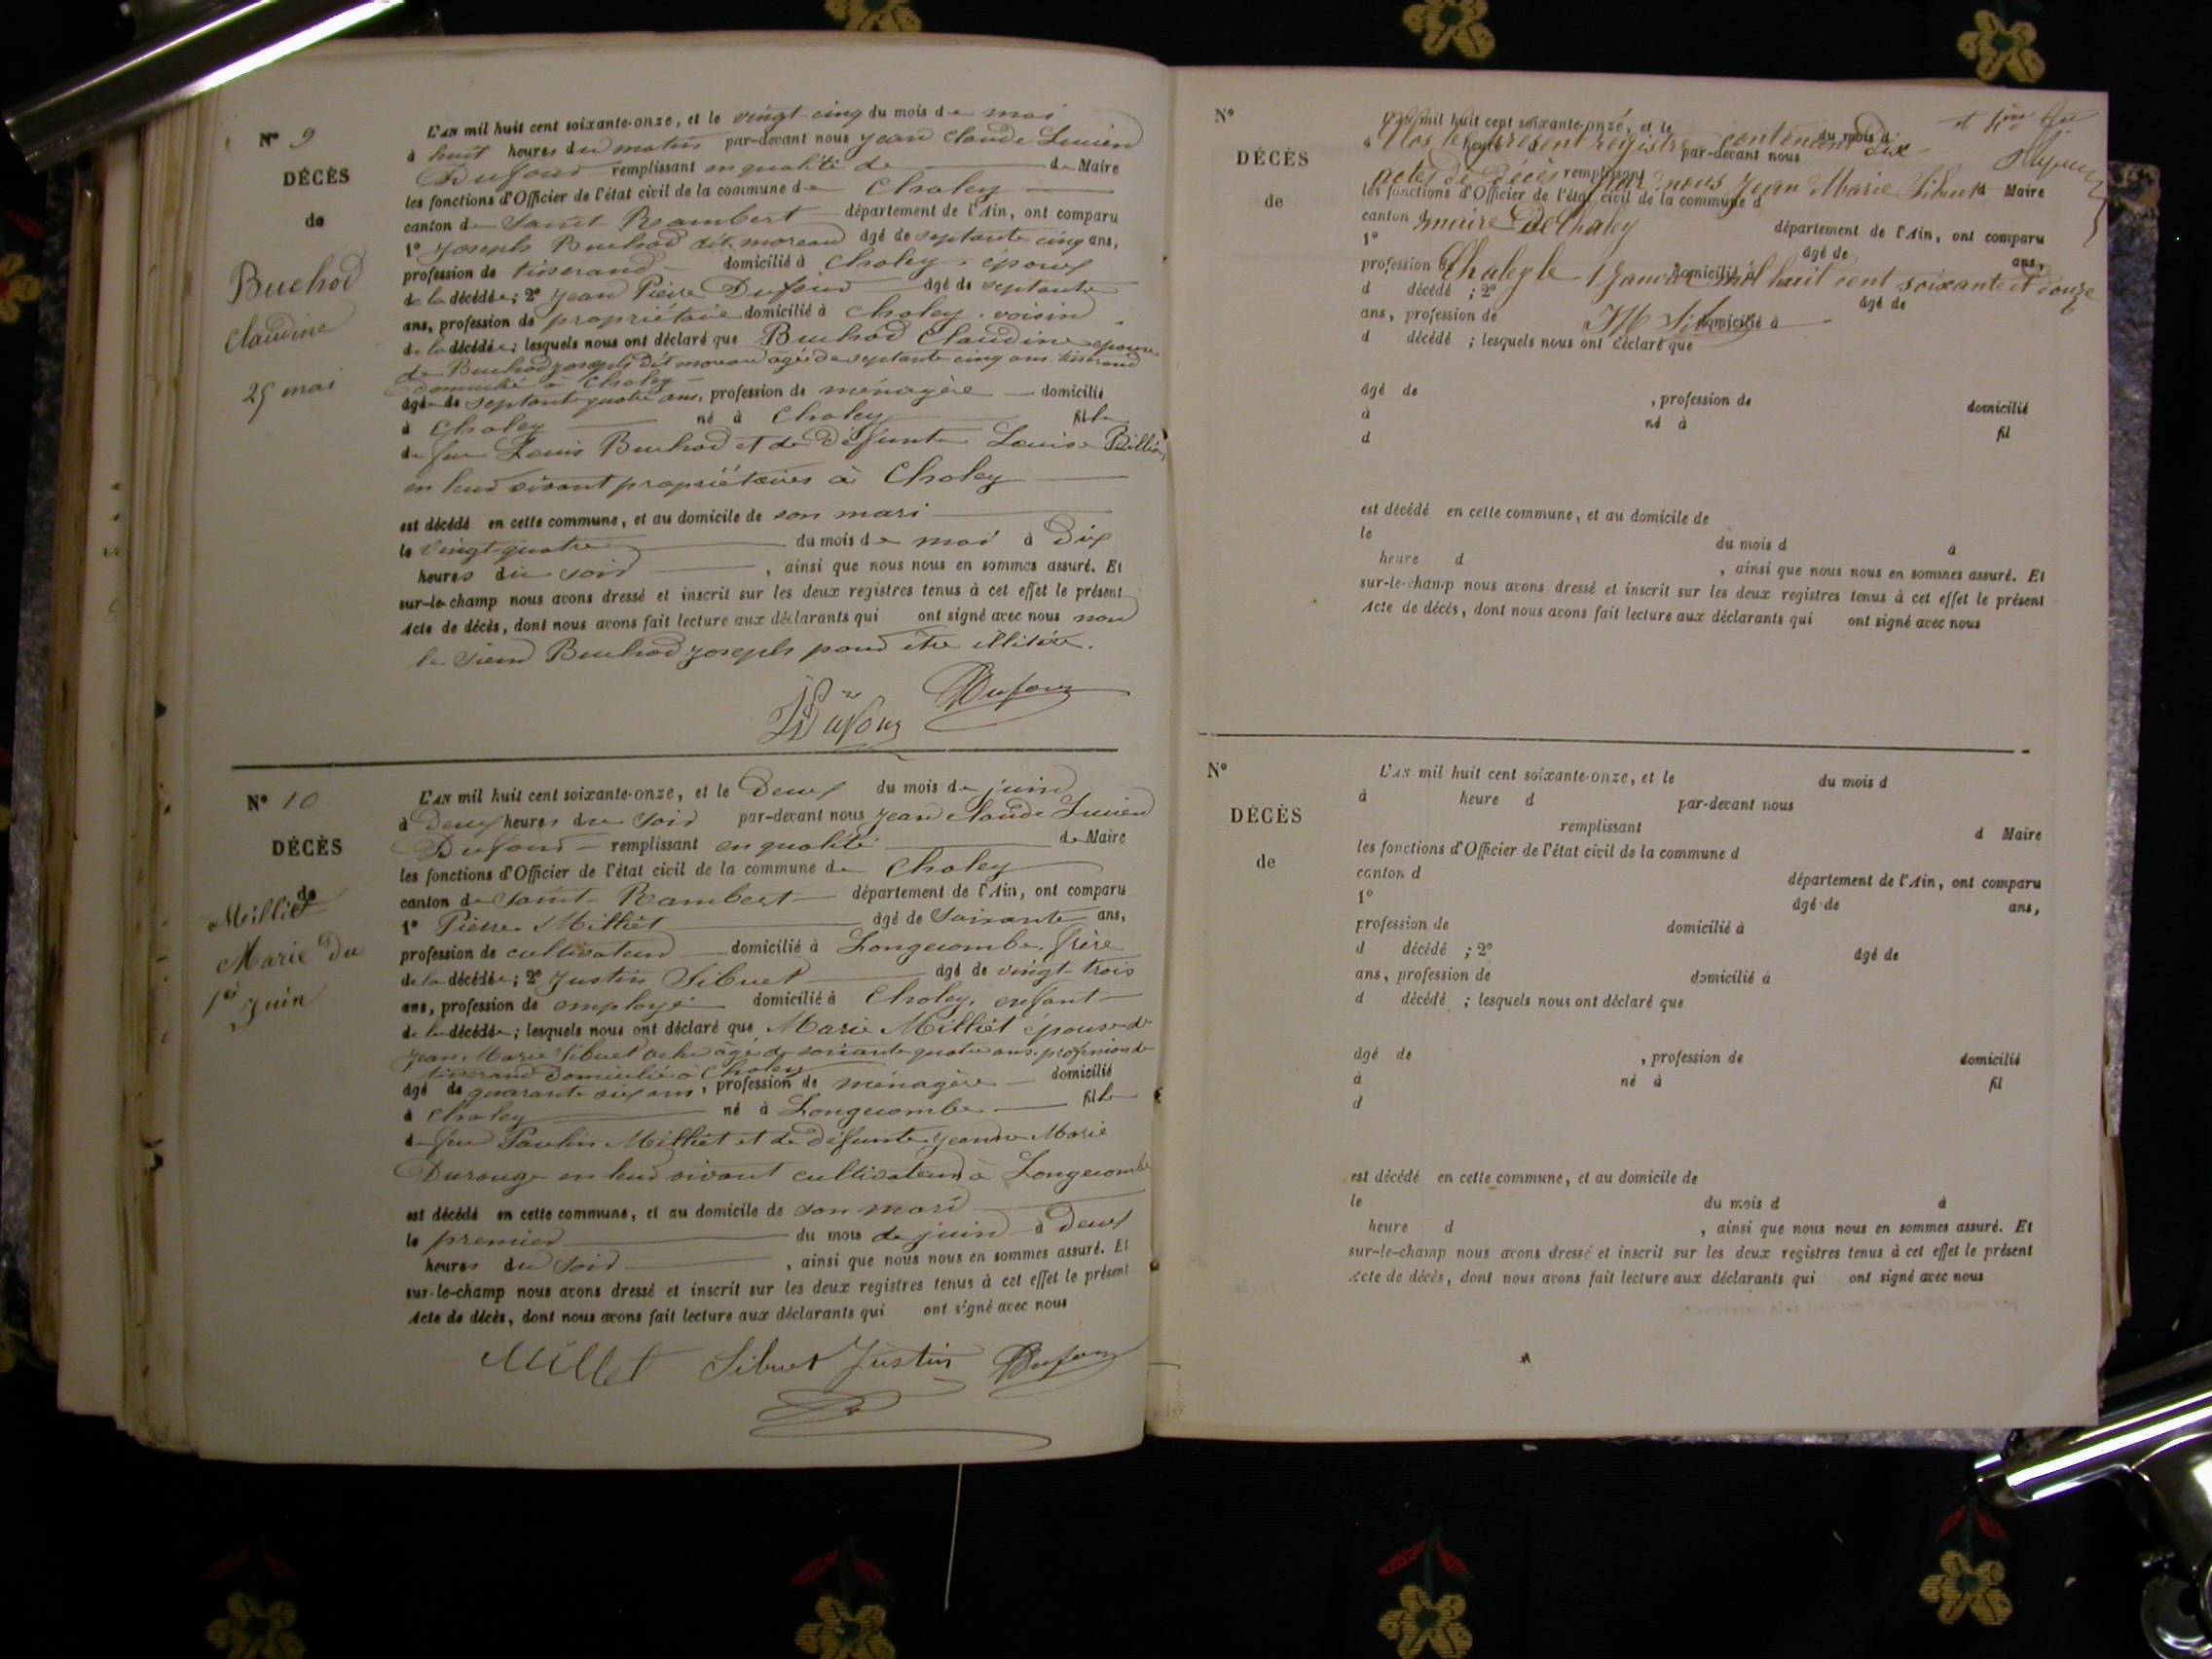 N° 9
DÉCÈS
de
Buchod
Claudine
25 mai
L'AN mil huit cent soixante-onze, et le vingt-cinq du mois de mai
à huit heures du matin par-devant nous Jean Claude Lucien
Dufour remplissant en qualité de de Maire
les fonctions d'Officier de l'état civil de la commune de Chaley
canton de Saint Rambert département de l'Ain, ont comparu
1° Joseph Buchod dit moreau âgé de septante cinq ans,
profession de tisserand domicilié à Chaley, époux
de la décédée; 2° Jean Pierre Dufour âgé de septante
ans, profession de propriétaire domicilié à Chaley, voisin
de la décédée; lesquels nous ont déclaré que Buchod Claudine épouse
de Buchod joseph dit moreau âgé de septante cinq ans tisserand
domicilié à Chaley
âgée de septante quatre ans, profession de ménagère domicilié
à Chaley né à Chaley fille
de feu Louis Buchod et de défunte Louise Billion
en leur vivant propriétaires à Chaley
est décédé en cette commune, et au domicile de son mari
le vingt quatre du mois de mai à Dix
heures du soir , ainsi que nous nous en sommes assuré. Et
sur-le-champ nous avons dressé et inscrit sur les deux registres tenus à cet effet le présent
Acte de décès, dont nous avons fait lecture aux déclarants qui ont signé avec nous non
le sieur Buchod joseph pour être illitéré.
Dufour Dufour
N° 10
DÉCÈS
de
Milliet
Marie du
1er Juin
L'AN mil huit cent soixante-onze, et le Deux du mois de juin
à Deux heures du soir par-devant nous Jean Claude Lucien
Dufour remplissant en qualité de Maire
les fonctions d'Officier de l'état civil de la commune de Chaley
canton de Saint Rambert département de l'Ain, ont comparu
1° Pierre Milliet âgé de soixante ans,
profession de cultivateur domicilié à Longecombe, frère
de la décédée; 2° Justin Sibuet âgé de vingt-trois
ans, profession de employé domicilié à Chaley, enfant
de la décédée; lesquels nous ont déclaré que Marie Milliet épouse de
Jean Marie Sibuet âgé de soixante quatre ans, profession de
tisserand Domicilié à Chaley
âgé de quarante six ans, profession de ménagère domicilié
à Chaley né à Longecombe fille
de feu Paulin Milliet et de défunte Jeanne Marie
Durouge en leur vivant cultivateurs à Longecombe
est décédé en cette commune, et au domicile de son mari
le premier du mois de juin à Deux
heures du soir , ainsi que nous nous en sommes assuré. Et
sur-le-champ nous avons dressé et inscrit sur les deux registres tenus à cet effet le présent
Acte de décès, dont nous avons fait lecture aux déclarants qui ont signé avec nous
Millet Sibuet Justin Dufour
N°
DÉCÈS
de
L'AN mil huit cent soixante-onze, et le du mois d
à heure d par-devant nous
remplissant d Maire
les fonctions d'Officier de l'état civil de la commune d
canton d département de l'Ain, ont comparu
1° âgé de ans,
profession de domicilié à
d décédé ; 2° âgé de
ans, profession de domicilié à
d décédé ; lesquels nous ont déclaré que
Clos le présent registre contenant dix
actes de décès par nous Jean Marie Sibuet
maire de Chaley
Chaley le 1 Janvier mil huit cent soixante et douze
JM Sibuet
âgé de , profession de domicilié
à né à fil
d
est décédé en cette commune, et au domicile de
le du mois d à
heure d , ainsi que nous nous en sommes assuré. Et
sur-le-champ nous avons dressé et inscrit sur les deux registres tenus à cet effet le présent
Acte de décès, dont nous avons fait lecture aux déclarants qui ont signé avec nous
N°
DÉCÈS
de
L'AN mil huit cent soixante-onze, et le du mois d
à heure d par-devant nous
remplissant d Maire
les fonctions d'Officier de l'état civil de la commune d
canton d département de l'Ain, ont comparu
1° âgé de ans,
profession de domicilié à
d décédé ; 2° âgé de
ans, profession de domicilié à
d décédé ; lesquels nous ont déclaré que
âgé de , profession de domicilié
à né à fil
d
est décédé en cette commune, et au domicile de
le du mois d à
heure d , ainsi que nous nous en sommes assuré. Et
sur-le-champ nous avons dressé et inscrit sur les deux registres tenus à cet effet le présent
Acte de décès, dont nous avons fait lecture aux déclarants qui ont signé avec nous